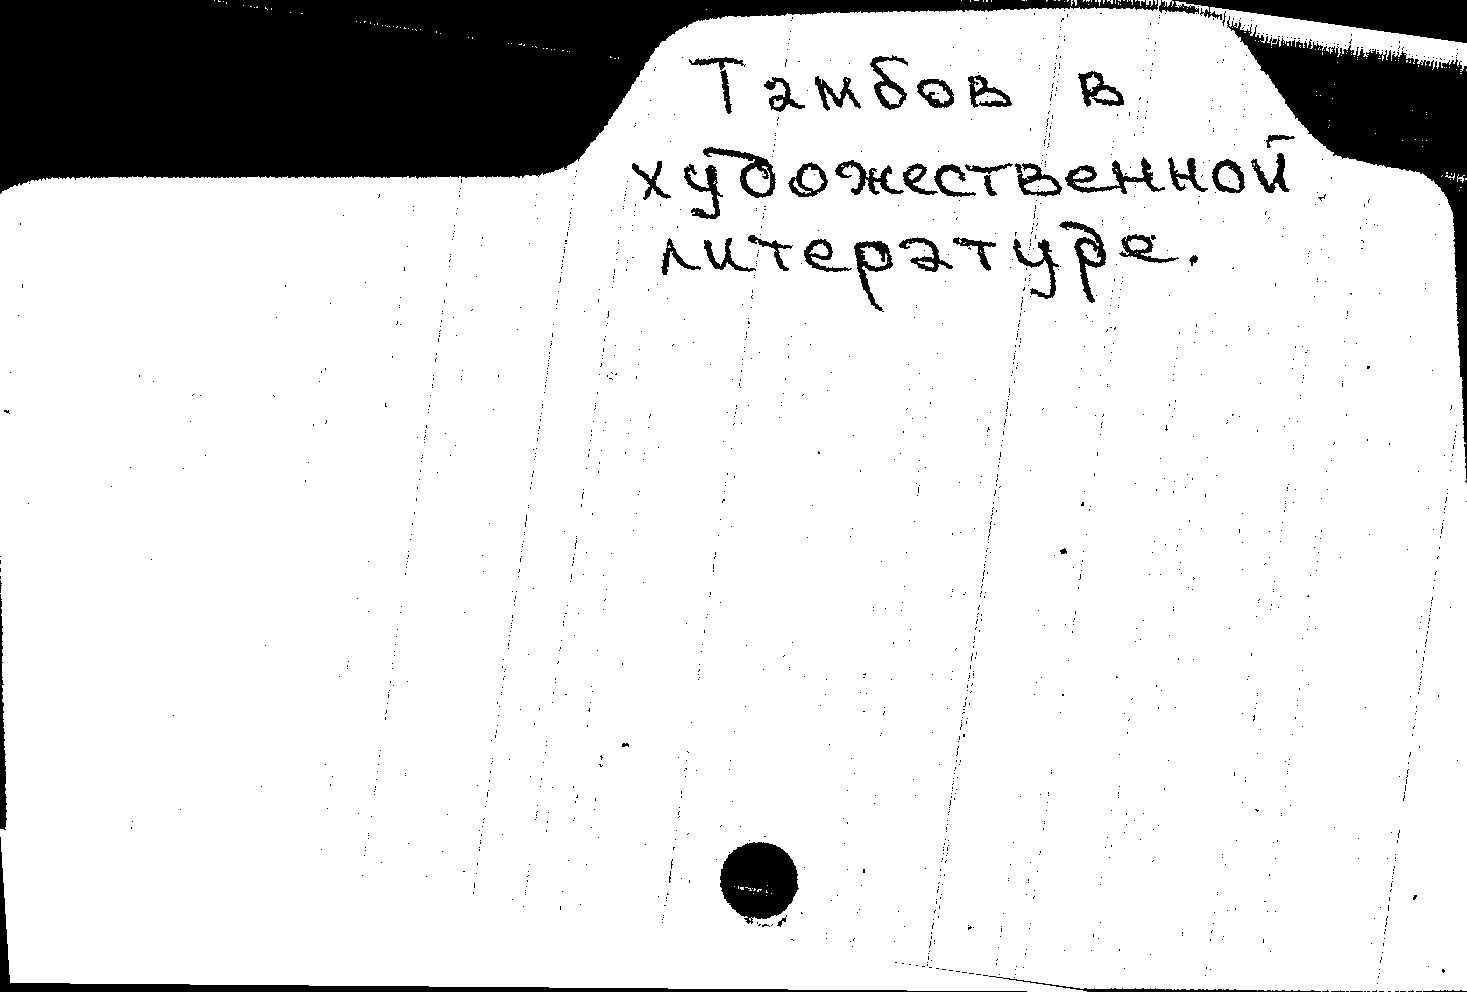 Тамбов в
художественной
литературе.